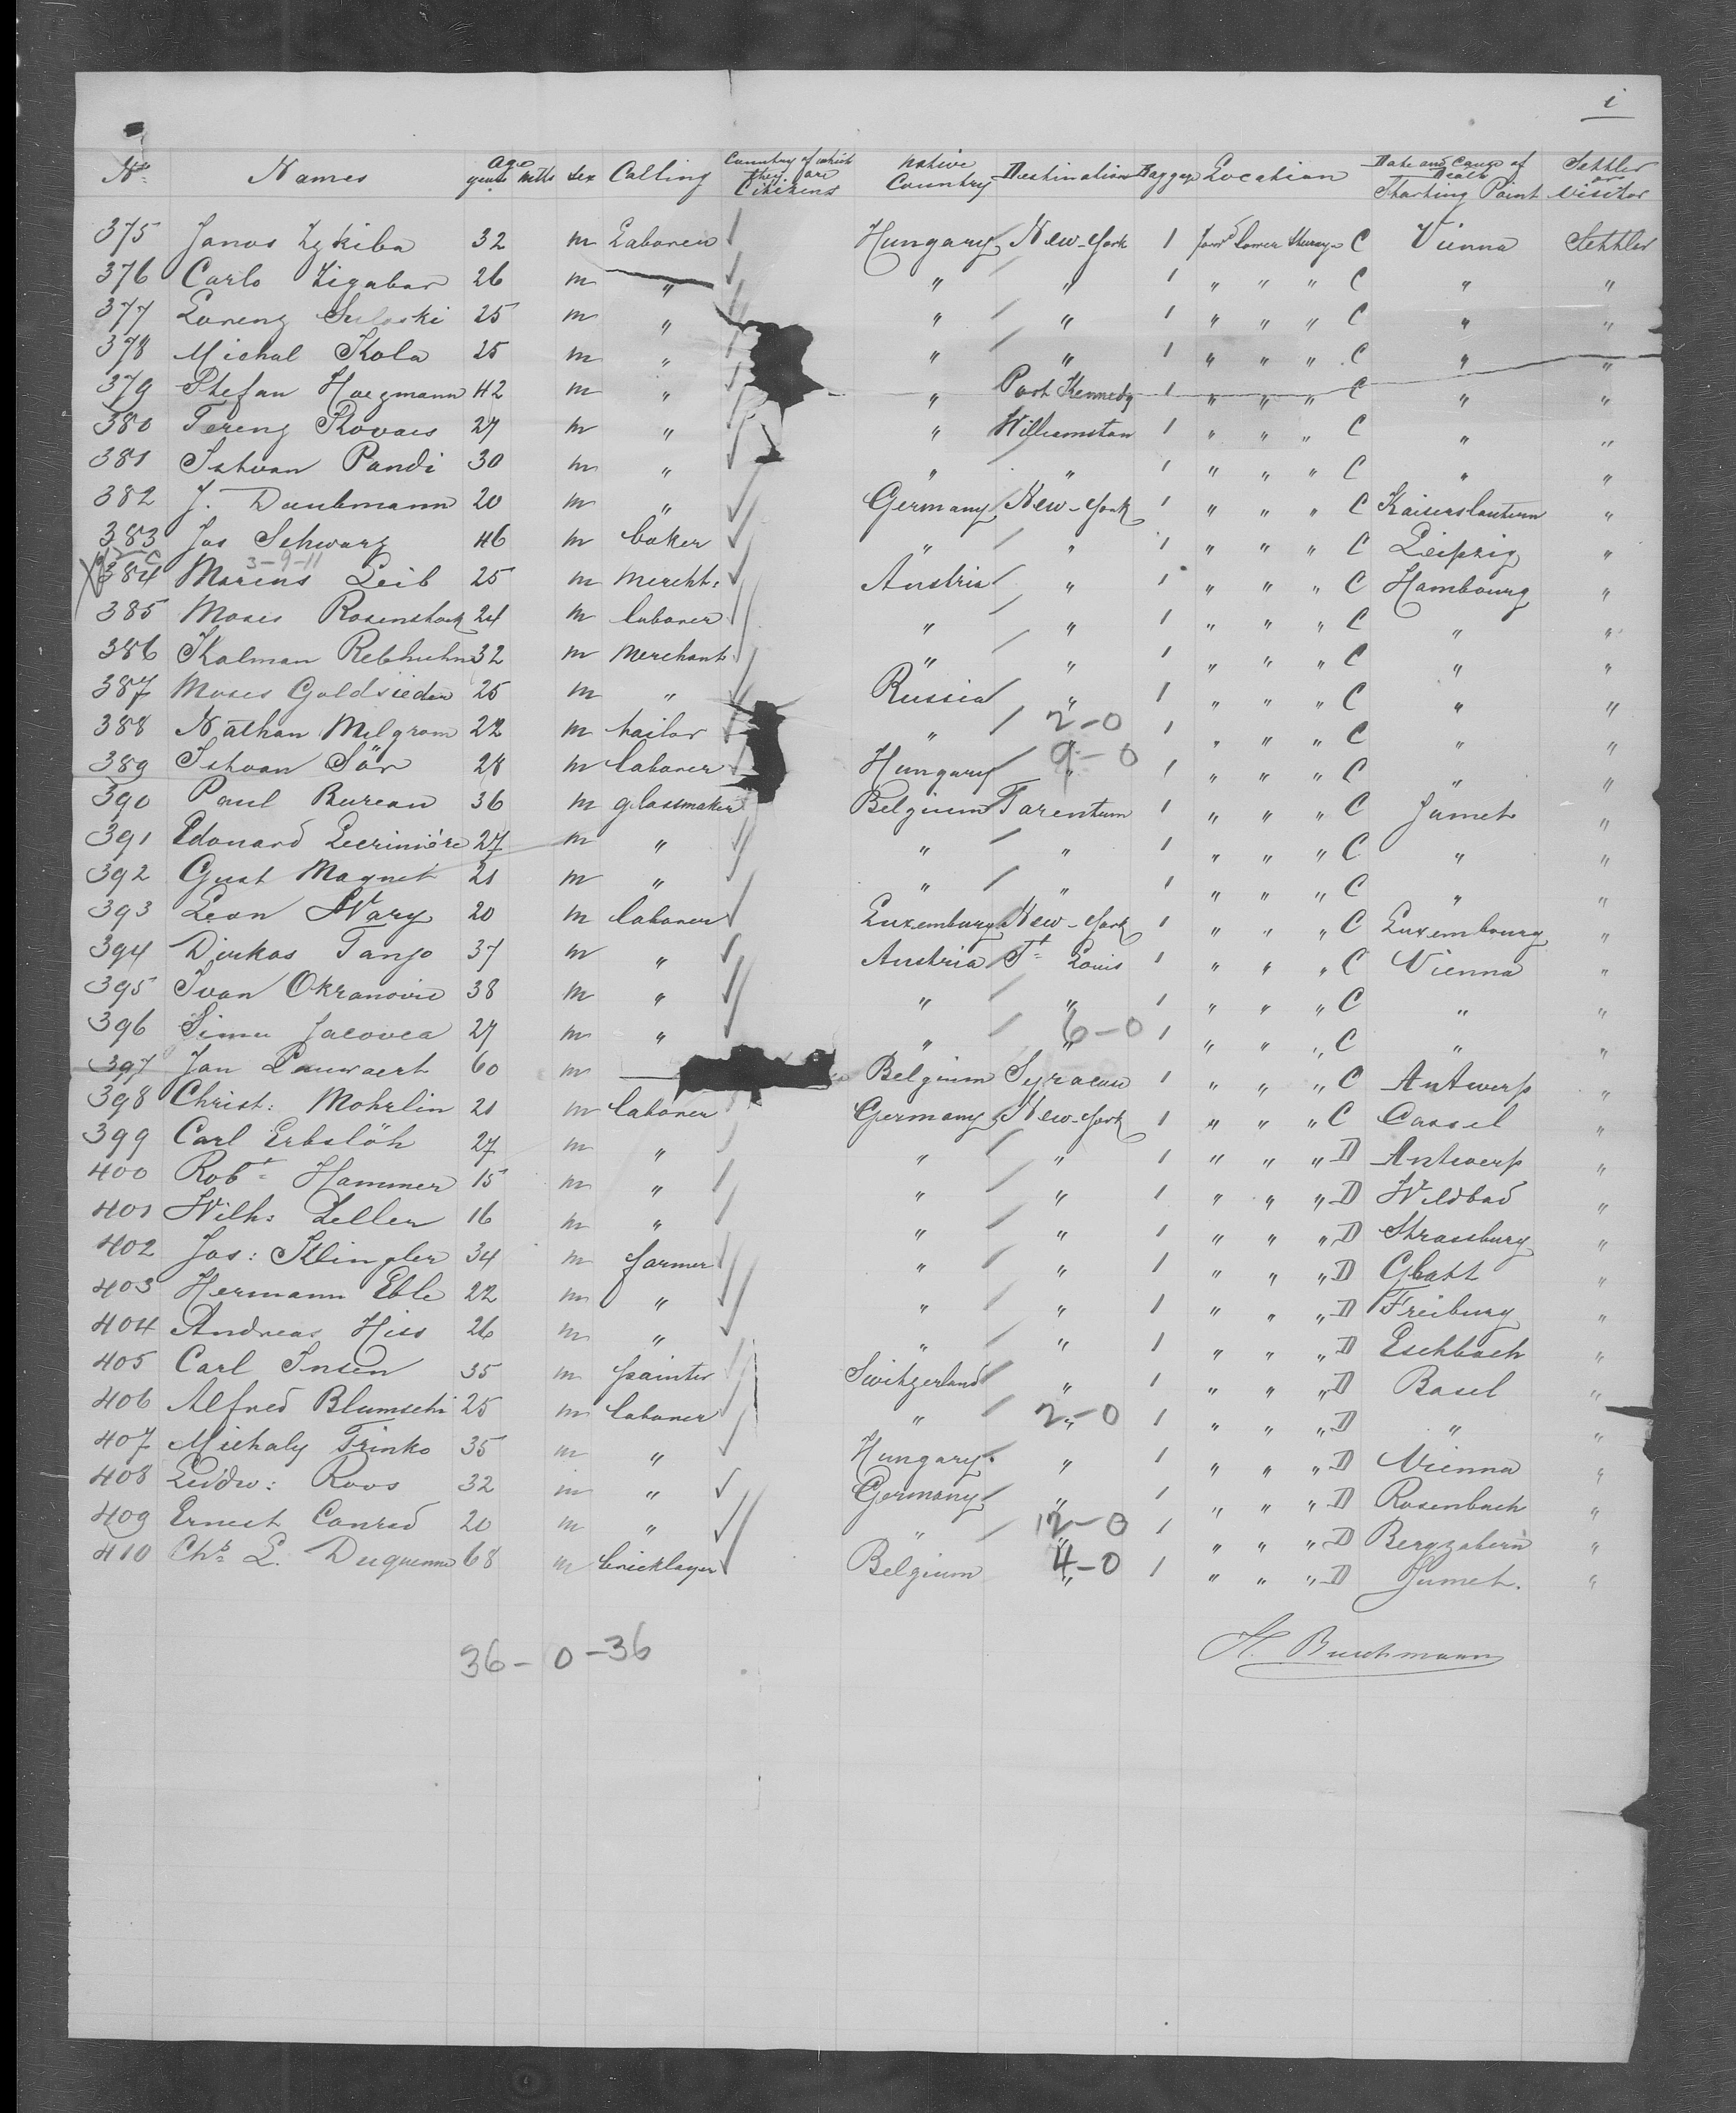 i
No Names Age years mths sex Calling Country of which they are Citizens native Country Destination Baggage Location Date and Cause of Death Starting Point Settler or visitor
375 Janos Zykiba 32 m Laborer Hungary New-York 1 forwd lower Steerage C Vienna Settler
376 Carlo Zigabar 26 m " " " 1 " " " C " "
377 Lorenz 25 m " " " 1 " " " C " "
378 Michal Kola 25 m " " " 1 " " " C " "
379 Stefan Haezmann 42 m " " Port Kennedy 1 " " " C " "
380 Ferenz Kovacs 27 m " " Williamstan 1 " " " C " "
381 Istvan Pandi 30 m " " " 1 " " " C " "
382 J. Daubmann 20 m " Germany New-York 1 " " " C Kaiserslautern "
383 Jos Schwarz 46 m baker " " 1 " " " C Leipzig "
3-9-11
384 Marcus Leib 25 m Mercht: Austria " 1 " " " C Hambourg "
385 Moses Rosenstock 24 m laborer " " 1 " " " C " "
386 Kalman Rebhuhn 32 m Merchant " " 1 " " " C " "
387 Moses Goldsieder 25 m " Russia " 1 " " " C " "
388 Nathan Milgrom 22 m tailor " " 2-0 1 " " " C " "
389 Istvan Sör 28 m laborer Hungary " 9-0 1 " " " C " "
390 Paul Bureau 36 m glassmaker Belgium Tarentum 1 " " " C Jumet "
391 Edouard Lecrinière 27 m " " " 1 " " " C " "
392 Gust Magnet 21 m " " " 1 " " " C " "
393 Leon Wary 20 m laborer Luxemburg New-York 1 " " " C Luxembourg "
394 Dirkas Tanjo 37 m " Austria St Louis 1 " " " C Vienna "
395 Ivan Okranovic 38 m " " " 1 " " " C " "
396 Simu Jacovca 27 m " " " 6-0 1 " " " C " "
397 Jan Pauwaert 60 m Belgium Syracuse 1 " " " C Antwerp "
398 Christ: Mohrlin 21 m laborer Germany New-York 1 " " " C Cassel "
399 Carl Erbslöh 27 m " " " 1 " " " D Antwerp "
400 Robt Hammer 15 m " " " 1 " " " D Wildbad "
401 Wilh: Zeller 16 m " " " 1 " " " D Strassburg "
402 Jos: Klingler 34 m farmer " " 1 " " " D Glatt "
403 Hermann Eble 22 m " " " 1 " " " D Freiburg "
404 Andreas Hiss 26 m " " " 1 " " " D Eschbach "
405 Carl Insen 35 m painter Switzerland " 1 " " " D Basel "
406 Alfred Blumschi 25 m laborer " " 2-0 1 " " " D " "
407 Michaly Trinko 35 m " Hungary " 1 " " " D Vienna "
408 Ludw: Roos 32 m " Germany " 1 " " " D Rosenbach "
409 Ernest Conrad 20 m " " " 12-0 1 " " " D Bergzabern "
410 Chs L. Duquenne 68 m bricklayer Belgium " 4-0 1 " " " D Jumet. "
36-0-36
H. Buschmann